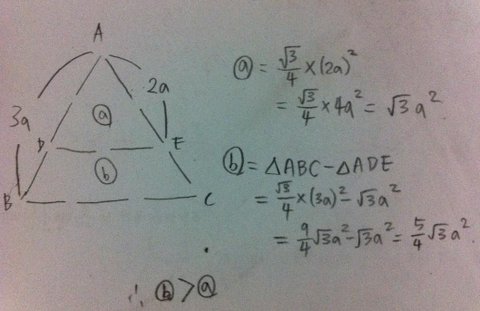 A
3a
2a
ⓐ
D
E
ⓑ
B
C
ⓐ = √3/4 × (2a)²
= √3/4 × 4a² = √3 a²
ⓑ = △ABC - △ADE
= √3/4 × (3a)² - √3 a²
= 9/4 √3a² - √3a² = 5/4 √3 a².
∴ ⓑ > ⓐ